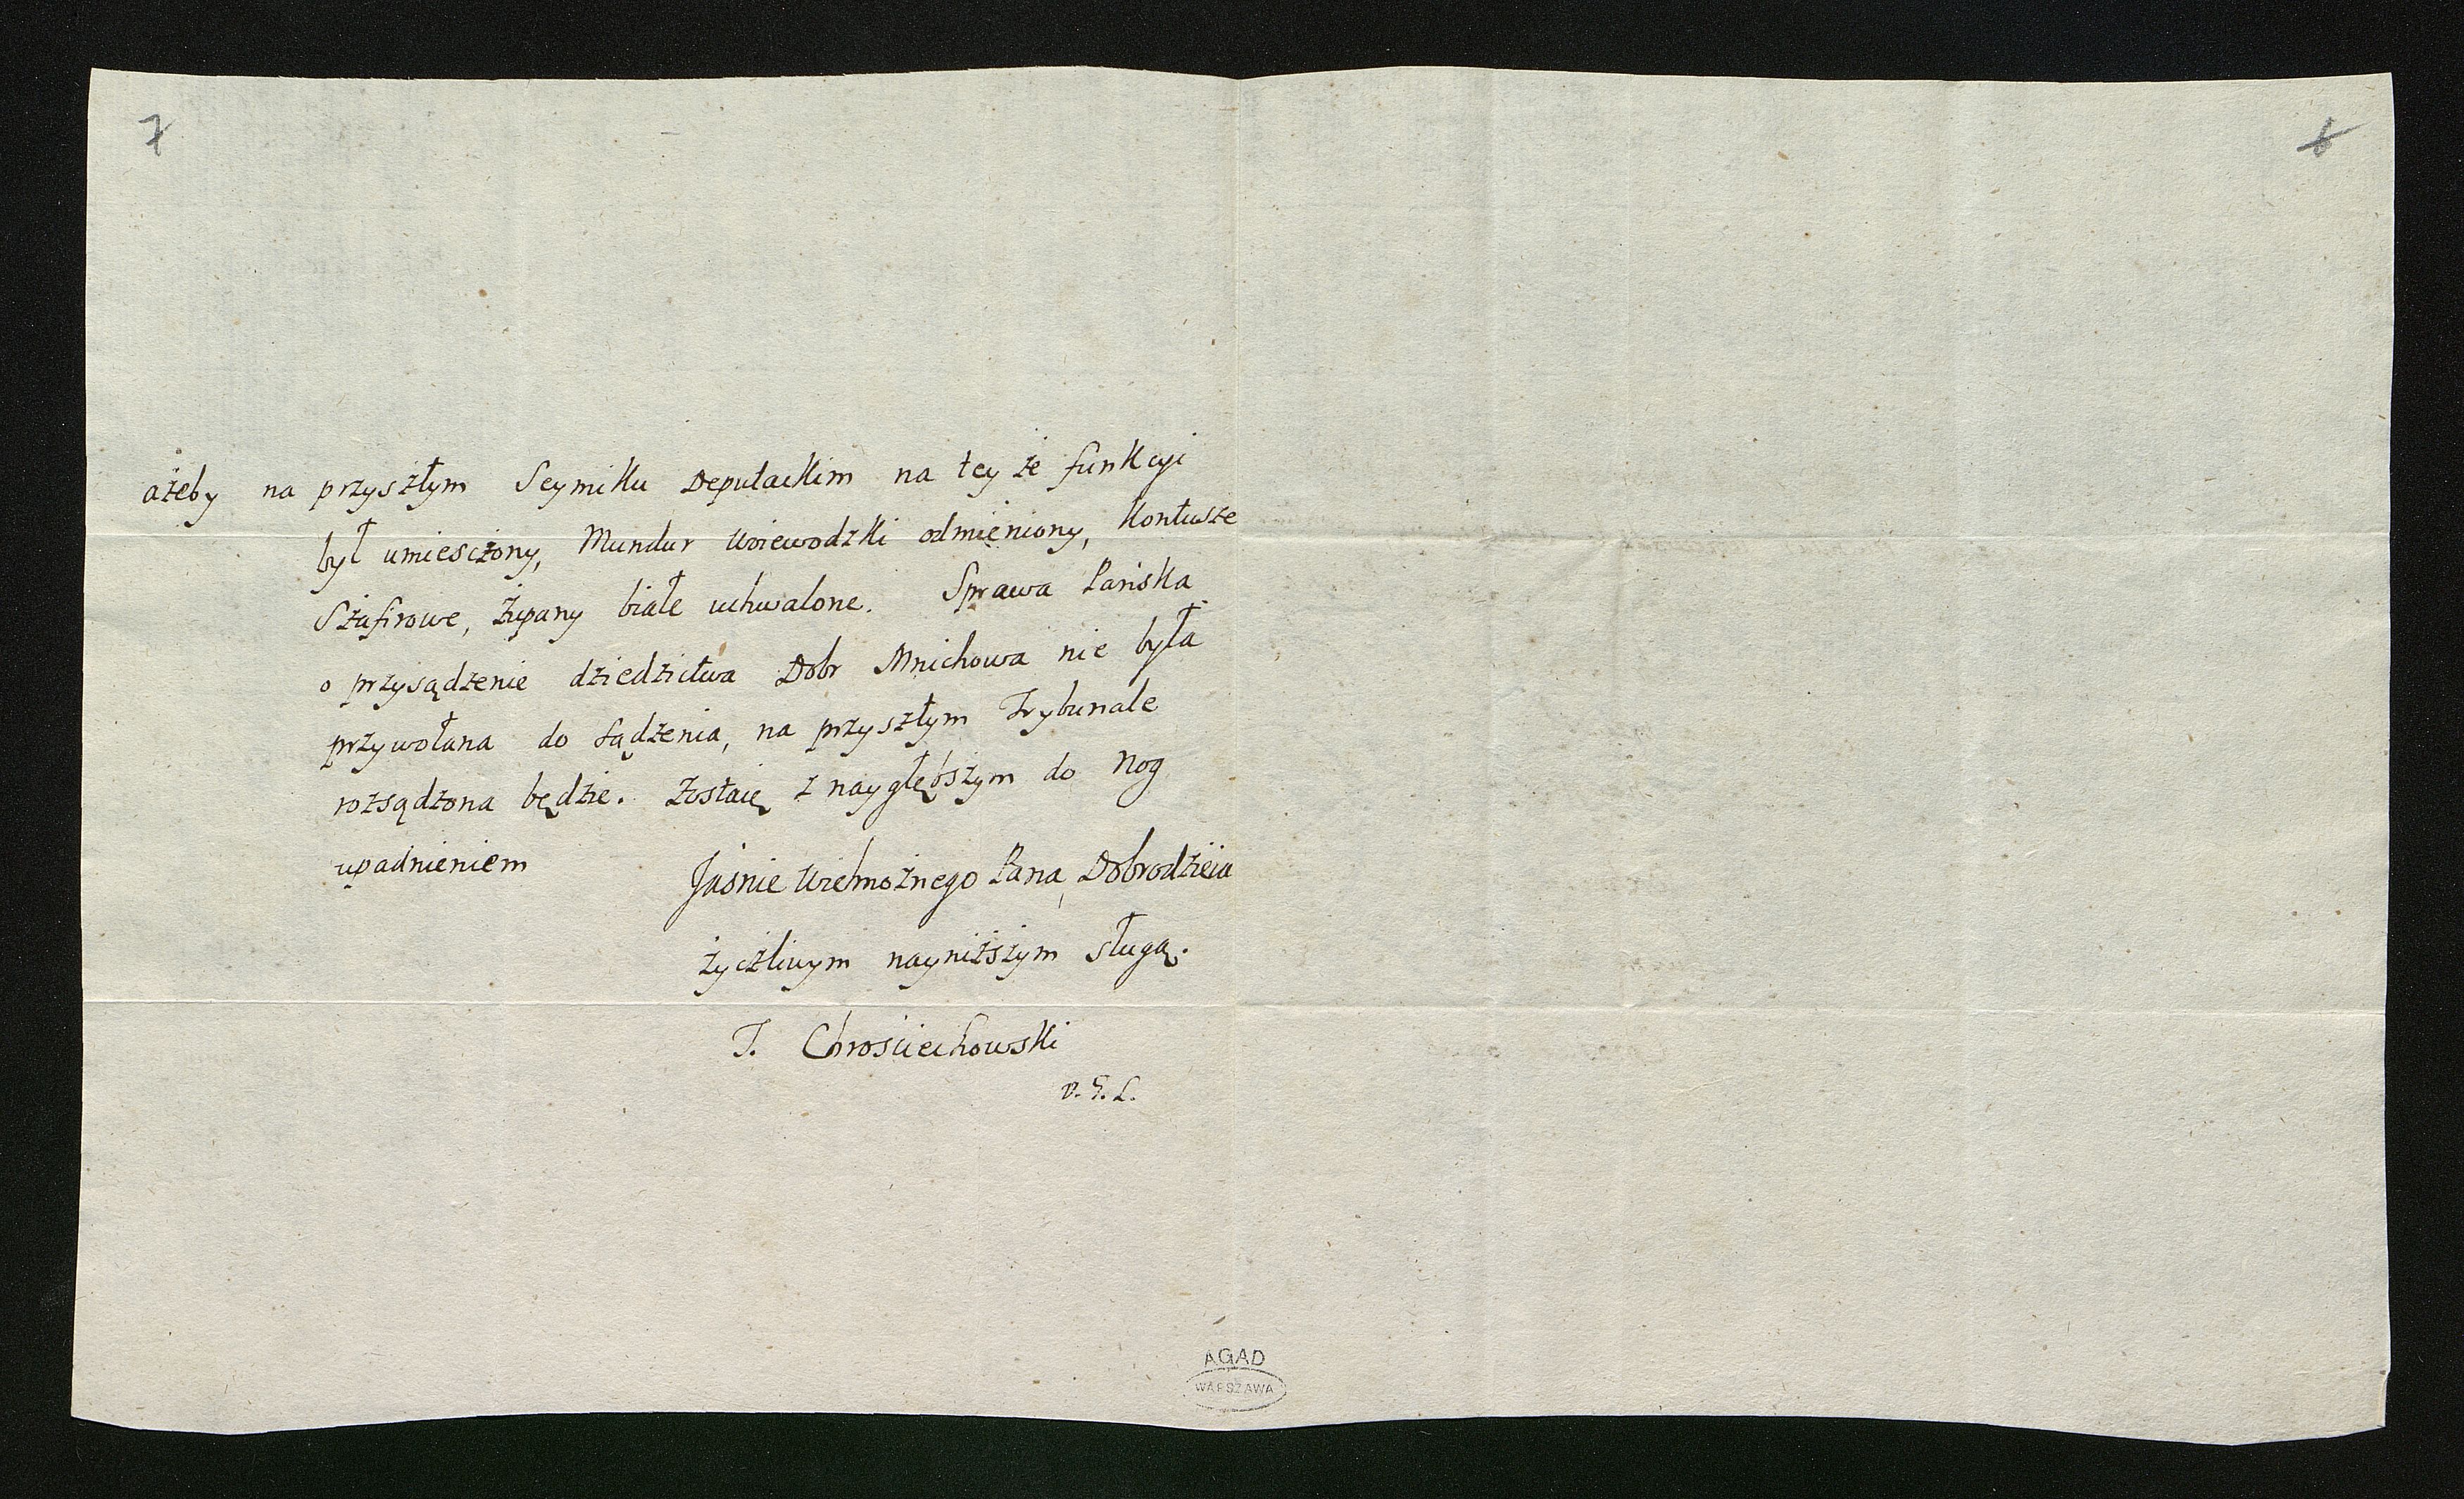 7
8
ażeby na przyszłym Seymiku Deputackim na tey że funkcyi
był umiesczony, Mundur Woiewodzki odmieniony, Kontusze
Szafirowe, Żupany białe uchwalone. Sprawa Pańska
o przysądzenie dziedzictwa Dobr Mnichowa nie była
przywołana do sądzenia, na przyszłym Trybunale
rozsądzona będzie. Zostaię z naygłębszym do Nog
upadnieniem
Jaśnie Wielmożnego Pana Dobrodzieia
życzliwym nayniższym sługą.
Chrościechowski
AGAD
WARSZAWA